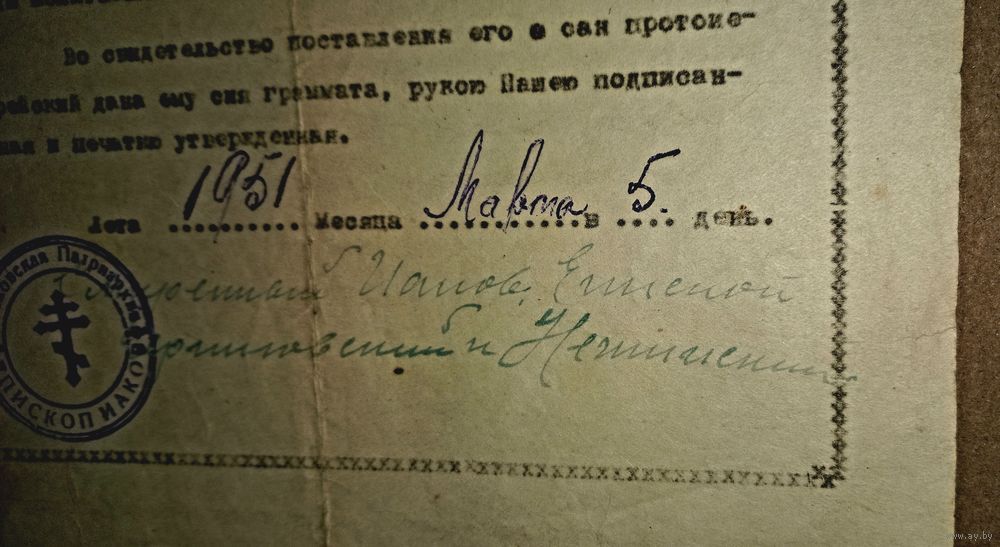 Во свидетельство поставления его в сан протоие-
рейский дана ему сия граммата, рукою Нашею подписан-
ная и печатию утвержденная.
Лета 1951 Месяца Марта в 5. день.
Иаков, Епископ
и
ПАТРИАРХИЯ
ЕПИСКОП ИАКОВ
www.ay.by